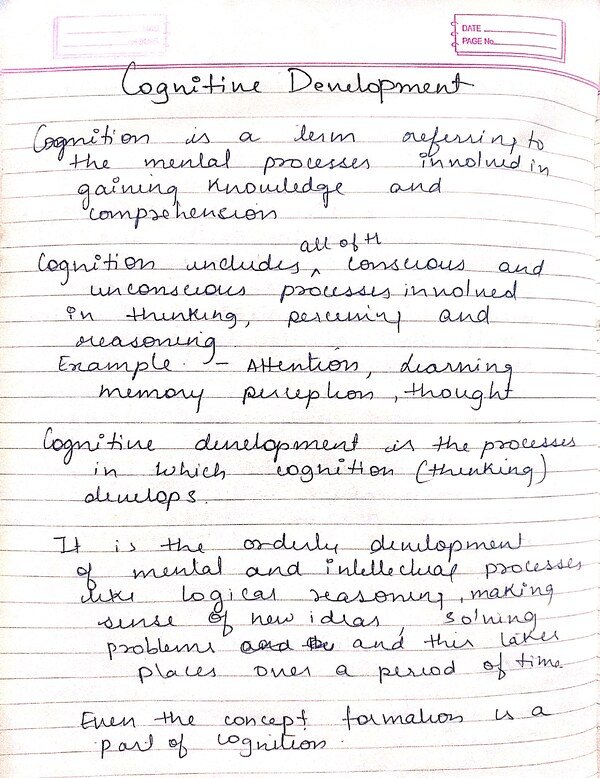 DATE
PAGE No.
Cognitive Development
Cognition is a term referring to
the mental processes involved in
gaining knowledge and
comprehension
all of th
Cognition includes ^ conscious and
unconscious processes involved
in thinking, perceiving and
reasoning
Example - Attention, Learning
memory perception, thought
Cognitive development is the processes
in which cognition (thinking)
develops.
It is the orderly development
of mental and intellectual processes
like logical reasoning, making
sense of new ideas, solving
problems and this takes
places over a period of time
Even the concept formation is a
part of cognition.